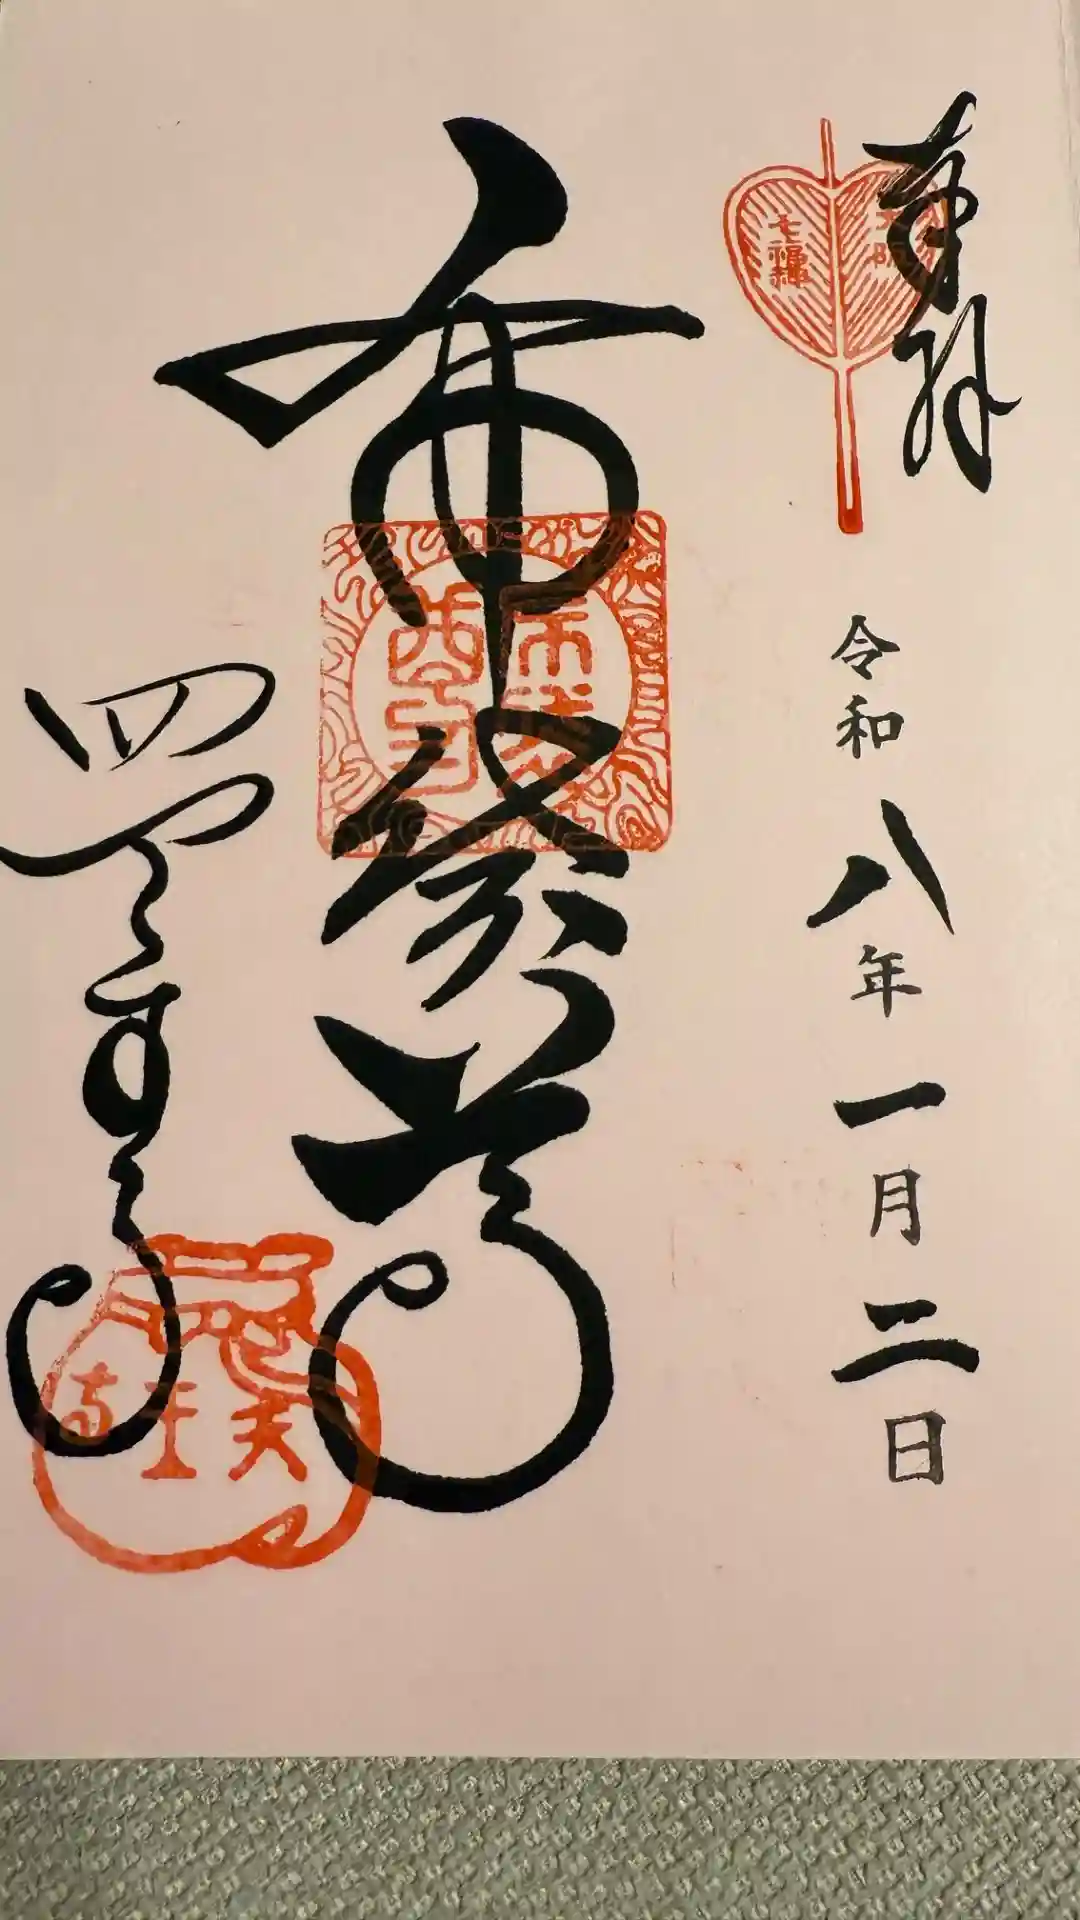 奉拝
大阪
七福神
令和八年一月二日
布袋尊
四天王寺
天王寺